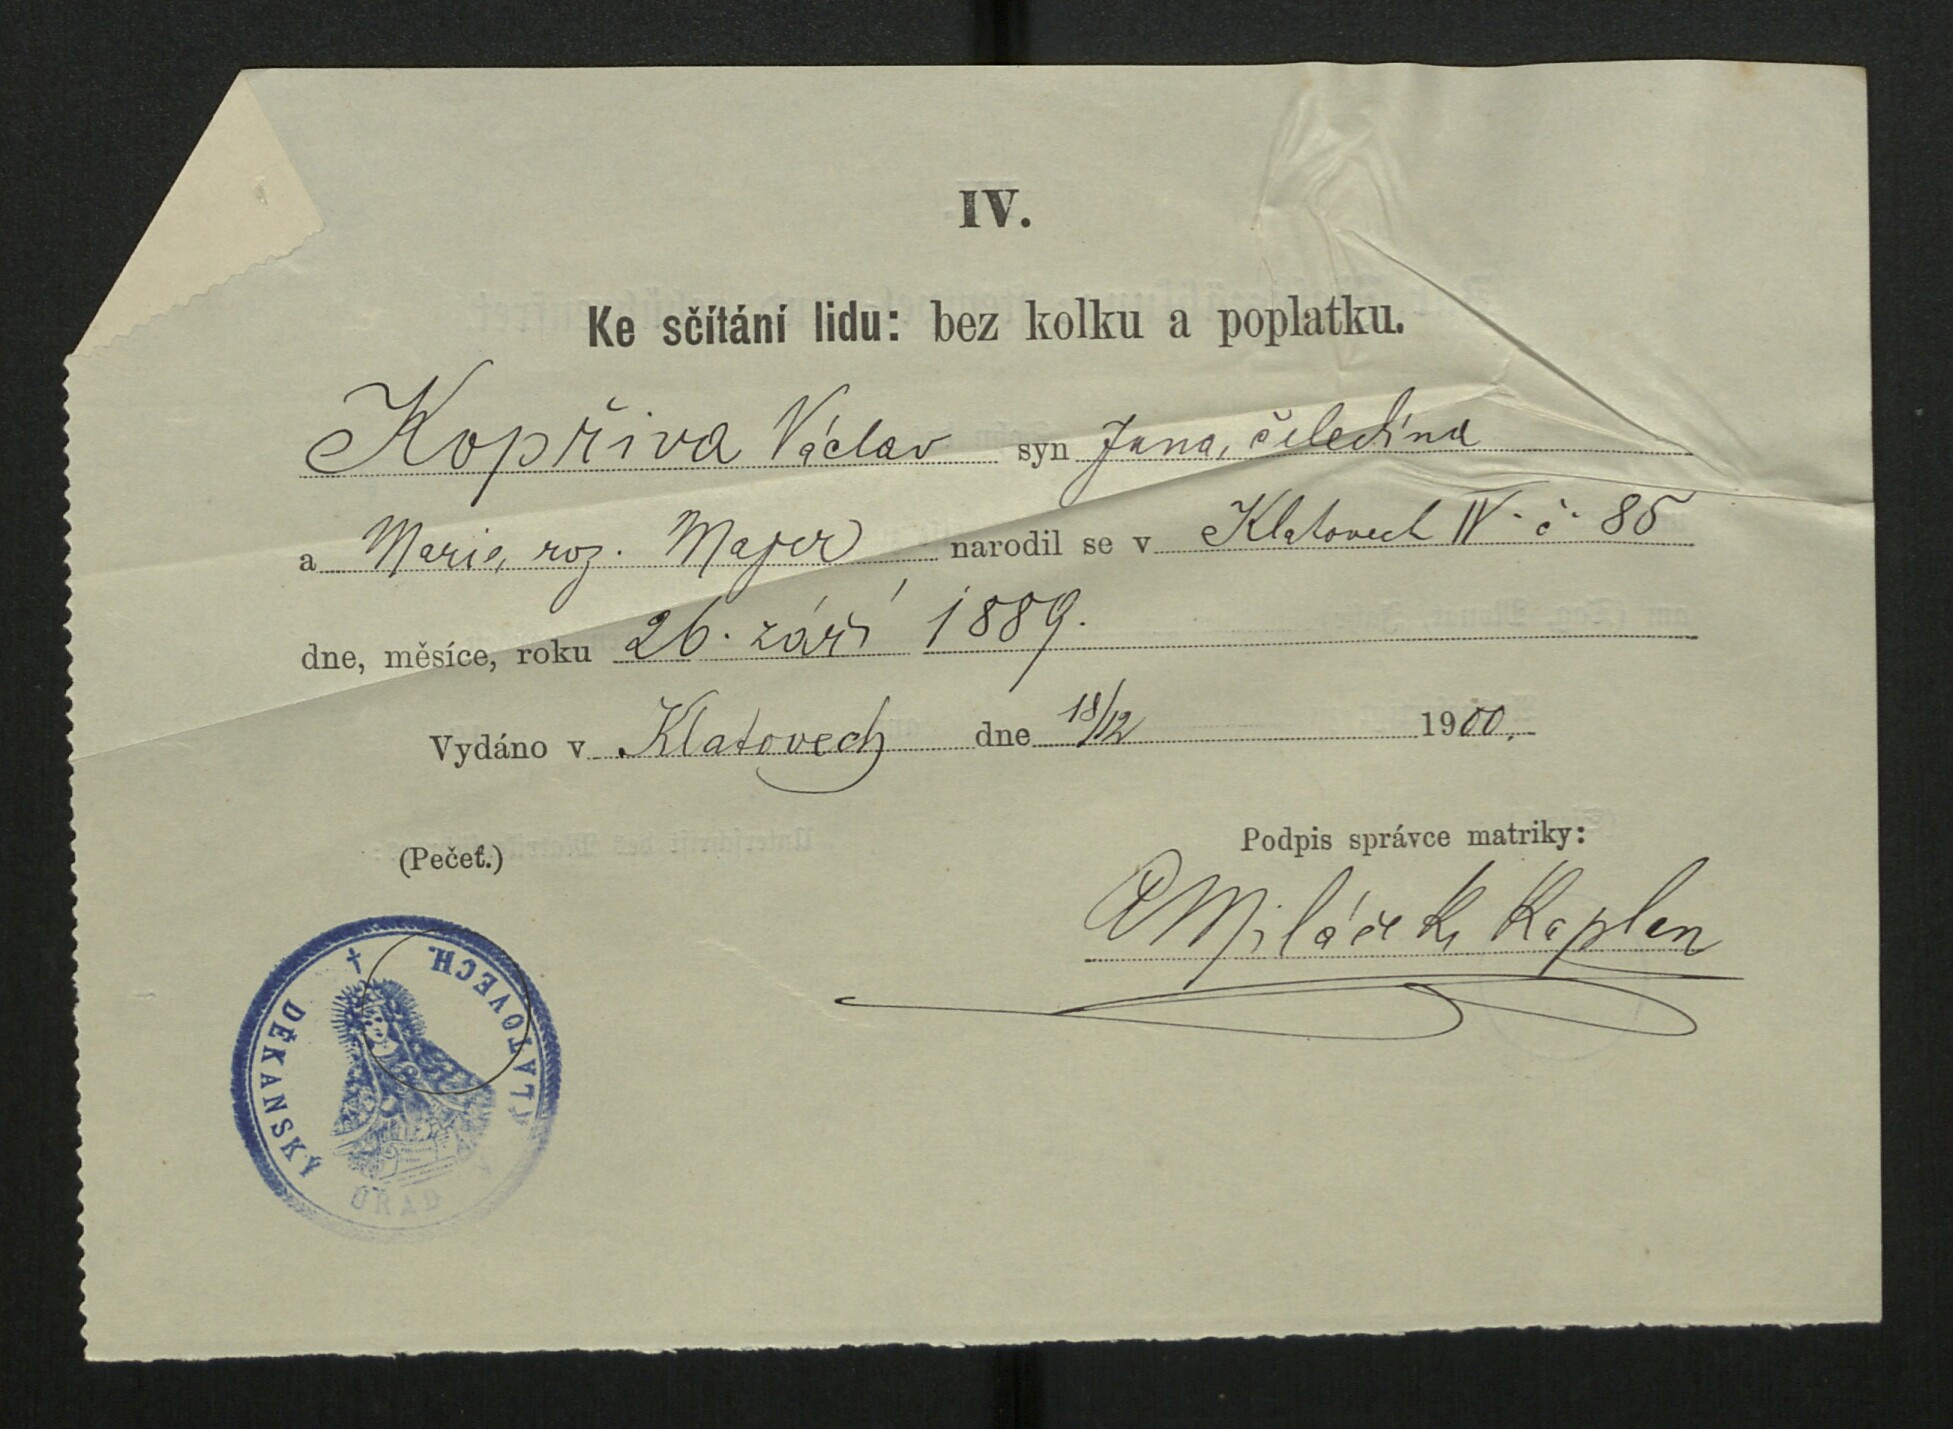 IV.
Ke sčítání lidu: bez kolku a poplatku.
Kopřiva Václav syn Jana, čeledína
a Marie, roz. Majer narodil se v Klatovech IV. č. 85
dne, měsíce, roku 26. září 1889.
Vydáno v Klatovech dne 18/12 1900.
Podpis správce matriky:
(Pečeť.)
Miláček, Kaplan
DĚKANSKÝ ÚŘAD V KLATOVECH.